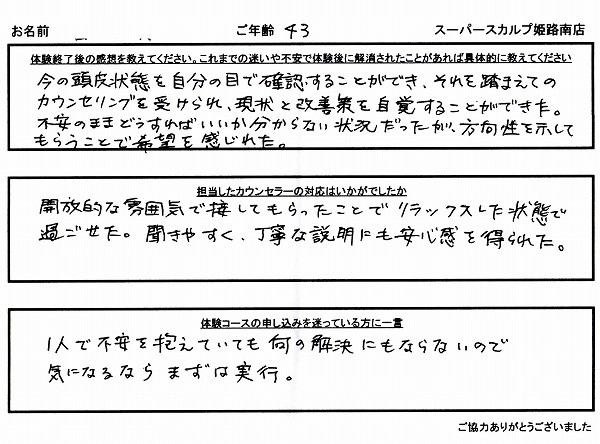 お名前 ご年齢 43 スーパースカルプ姫路南店
体験終了後の感想を教えてください。これまでの迷いや不安で体験後に解消されたことがあれば具体的に教えてください
今の頭皮状態を自分の目で確認することができ、それを踏まえての
カウンセリングを受けられ、現状と改善策を自覚することができた。
不安のままどうすればいいか分からない状況だったが、方向性を示して
もらうことで希望を感じれた。
担当したカウンセラーの対応はいかがでしたか
開放的な雰囲気で接してもらったことでリラックスした状態で
過ごせた。聞きやすく、丁寧な説明にも安心感を得られた。
体験コースの申し込みを迷っている方に一言
1人で不安を抱えていても何の解決にもならないので
気になるならまずは実行。
ご協力ありがとうございました